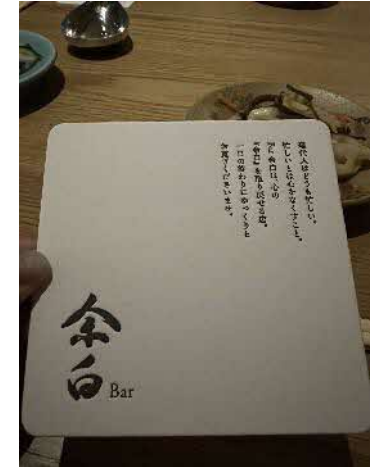 現代人はどうも忙しい。
忙しいとは心をなくすこと。
Bar 余白は、心の
"余白"を取り戻せる店。
一日の終わりにゆっくりと
お寛ぎくださいませ。
余白 Bar